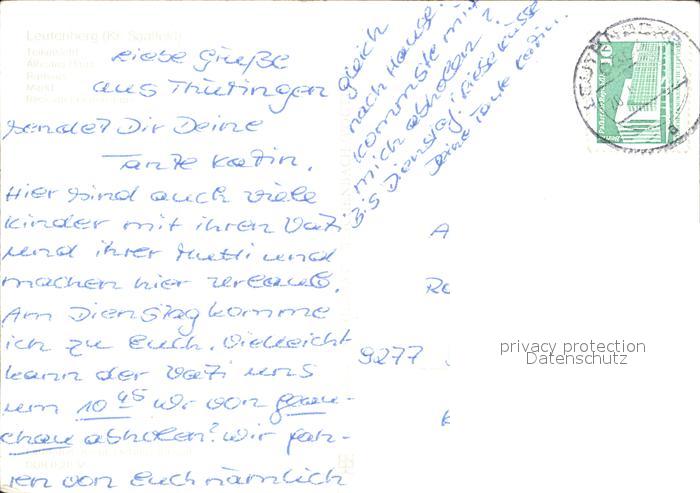 Leutenberg (Kr. Saalfeld)
Liebe Grüße
aus Thüringen
sendet Dir Deine
Tante Katin.
Hier sind auch viele
Kinder mit ihren Vati
und ihrer Mutti und
machen hier Urlaub.
Am Dienstag komme
ich zu Euch. Vielleicht
kann der Vati uns
um 10 45 Uhr von Glau-
chau abholen? Wir fah-
ren von Euch nämlich
gleich
nach Hause.
Kommste mit
mich abholen?
Bis Dienstag! Liebe Küsse
Deine Tante Katin.
10
A
Ro
9277
K
privacy protection
Datenschutz